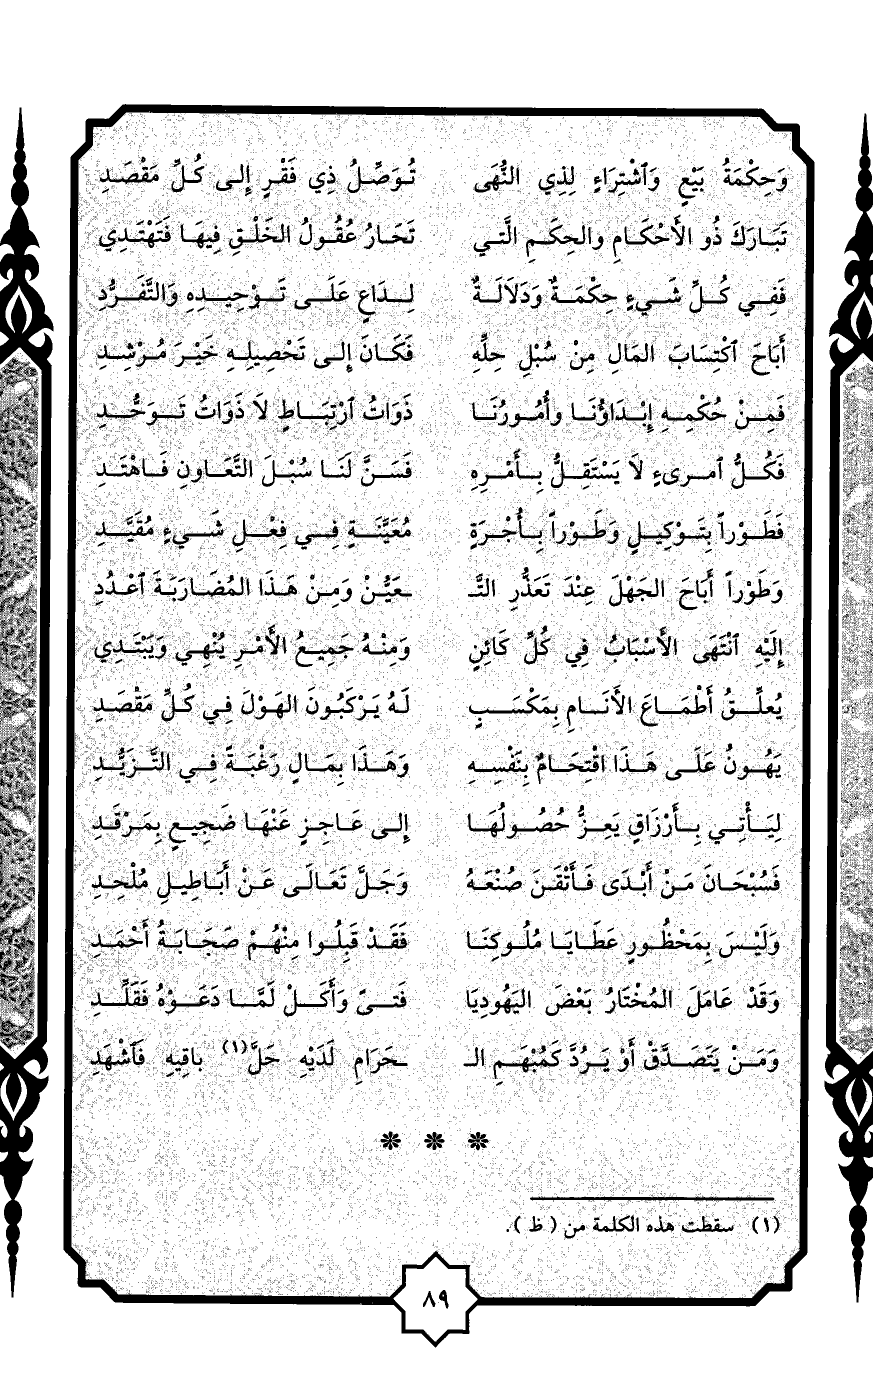 وَحِكْمَةُ بَيْعٍ وَٱشْتِرَاءٍ لِذِي النُّهَى تُوَصِّلُ ذِي فَقْرٍ إِلى كُلِّ مَقْصَدِ
تَبَارَكَ ذُو الأَحْكَامِ والحِكَمِ الَّتي تَحَارُ عُقُولُ الخَلْقِ فِيهَا فَتَهْتَدِي
فَفِي كُلِّ شَيءٍ حِكْمَةٌ وَدَلَالَةٌ لِدَاعٍ عَلَى تَوْحِيدِهِ وَالتَّفَرُّدِ
أَبَاحَ ٱكْتِسَابَ المَالِ مِنْ سُبْلِ حِلِّهِ فَكَانَ إِلى تَحْصِيلِهِ خَيْرَ مُرْشِدِ
فَمِنْ حُكْمِهِ إِبْدَاؤُنَا وأُمُورُنَا ذَوَاتُ ٱرْتِبَاطٍ لَا ذَوَاتُ تَوَحُّدِ
فَكُلُّ ٱمرىءٍ لَا يَسْتَقِلُّ بِأَمْرِهِ فَسَنَّ لَنَا سُبْلَ التَّعَاونِ فَاهْتَدِ
فَطَوْراً بِتَوْكِيلٍ وَطَوْراً بِأُجْرَةٍ مُعَيَّنَةٍ فِي فِعْلِ شَيءٍ مُقَيَّدِ
وَطَوْراً أَبَاحَ الجَهْلَ عِنْدَ تَعَذُّرِ التَّـ ـعَيُّنْ وَمِنْ هَذَا المُضَارَبَةَ ٱعْدُدِ
إِلَيْهِ ٱنْتَهَى الأَسْبَابُ فِي كُلِّ كَائِنٍ وَمِنْهُ جَمِيعُ الأَمْرِ يُنْهِي وَيَبْتَدِي
يُعلِّقُ أَطْمَاعَ الأَنَامِ بِمَكْسَبٍ لَهُ يَرْكَبُونَ الهَوْلَ فِي كُلِّ مَقْصَدِ
يَهُونُ عَلَى هَذَا اقْتِحَامٌ بِنَفْسِهِ وَهَذَا بِمَالٍ رَغْبَةً فِي التَّزَيُّدِ
لِيَأْتِي بِأَرْزَاقٍ يَعِزُّ حُصُولُهَا إِلى عَاجِزٍ عَنْهَا ضَجِيعٍ بِمَرْقَدِ
فَسُبْحَانَ مَنْ أَبْدَى فَأَتْقَنَ صُنْعَهُ وَجَلَّ تَعَالَى عَنْ أَبَاطِيلِ مُلْحِدِ
وَلَيْسَ بِمَحْظُورٍ عَطَايَا مُلُوكِنَا فَقَدْ قَبِلُوا مِنْهُمْ صَحَابَةُ أَحْمَدِ
وَقَدْ عَامَلَ المُخْتَارُ بَعْضَ اليَهُودِيَا فَتىً وَأَكَلْ لَمَّا دَعَوْهُ فَقَلِّدِ
وَمَنْ يَتَصَدَّقْ أَوْ يَرُدَّ كَمُبْهَمِ الـ ـحَرَامِ لَدَيْهِ حَلَّ(١) باقِيهِ فَٱشْهَدِ
(١) سقطت هذه الكلمة من ( ظ ).
٨٩